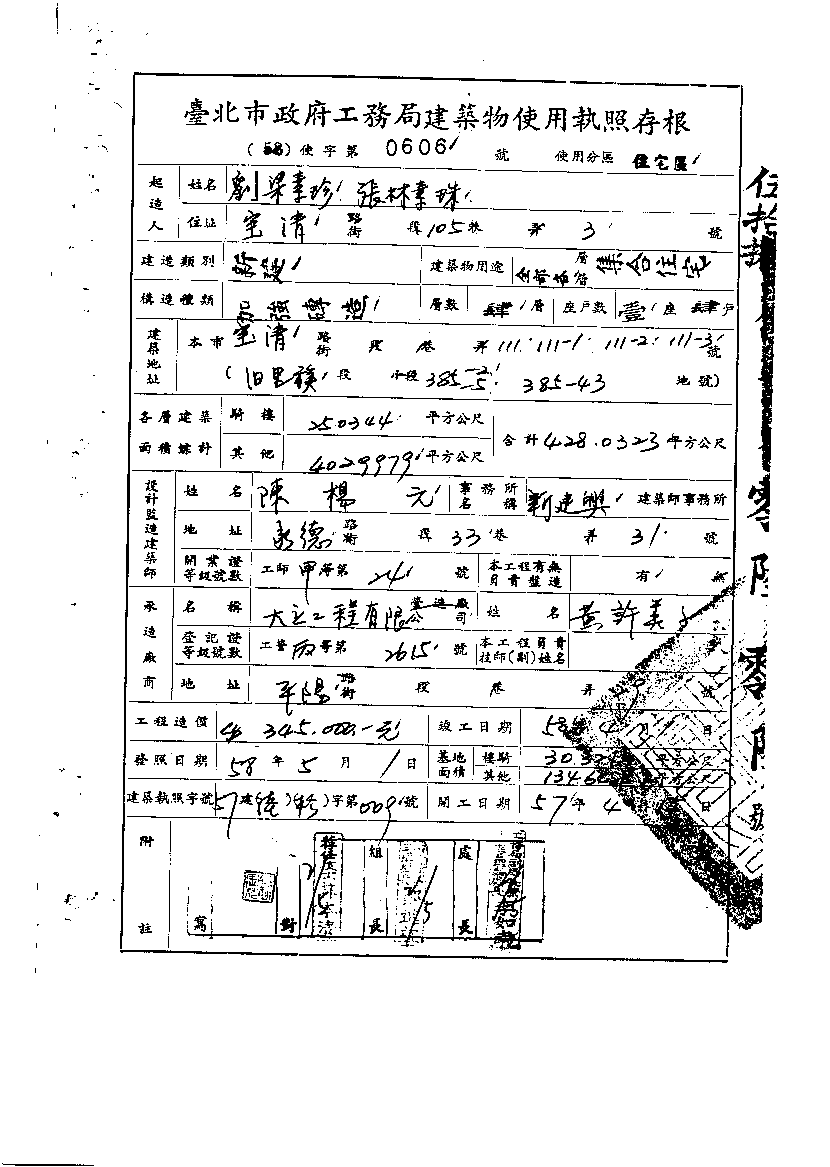 臺北市政府工務局建築物使用執照存根
(58) 使字第 0606 號 使用分區 住宅區
起造人 姓名 劉梁素珍 張林素珠
住址 寶清 路街 段 105 巷 弄 3 號
建造類別 新建 建築物用途 全部各層 集合住宅
構造種類 加強磚造 層數 肆層 座戶數 壹座 肆戶
建築地址 本市 寶清 路街 段 巷 弄 111. 111-1. 111-2. 111-3 號
(旧里族 段 小段 385-2/5. 385-43 地號)
各層建築面積總計 騎樓 250344 平方公尺 合計 428.0323 平方公尺
其他 4029979 平方公尺
設計監造建築師 姓名 陳楊元 事務所名稱 新建興 建築師事務所
地址 永德 路街 段 33 巷 弄 31 號
開業證等級號數 工師 甲 等第 24 號 本工程有無負責監造 有 無
承造廠商 名稱 大立工程有限公司 營造廠 姓名 黃許美子
登記證等級號數 工營 丙 等第 2615 號 本工程負責技師(副)姓名
地址 平陽 路街 段 巷 弄 號
工程造價 345.000.-元 竣工日期 58 年 4 月 日
發照日期 58 年 5 月 1 日 基地面積 騎樓 平方公尺
其他 平方公尺
建築執照字號 57 建 字第 009 號 開工日期 57 年 4 日
附註
寫 對 組長 處長
伍拾捌
零陸零陸號